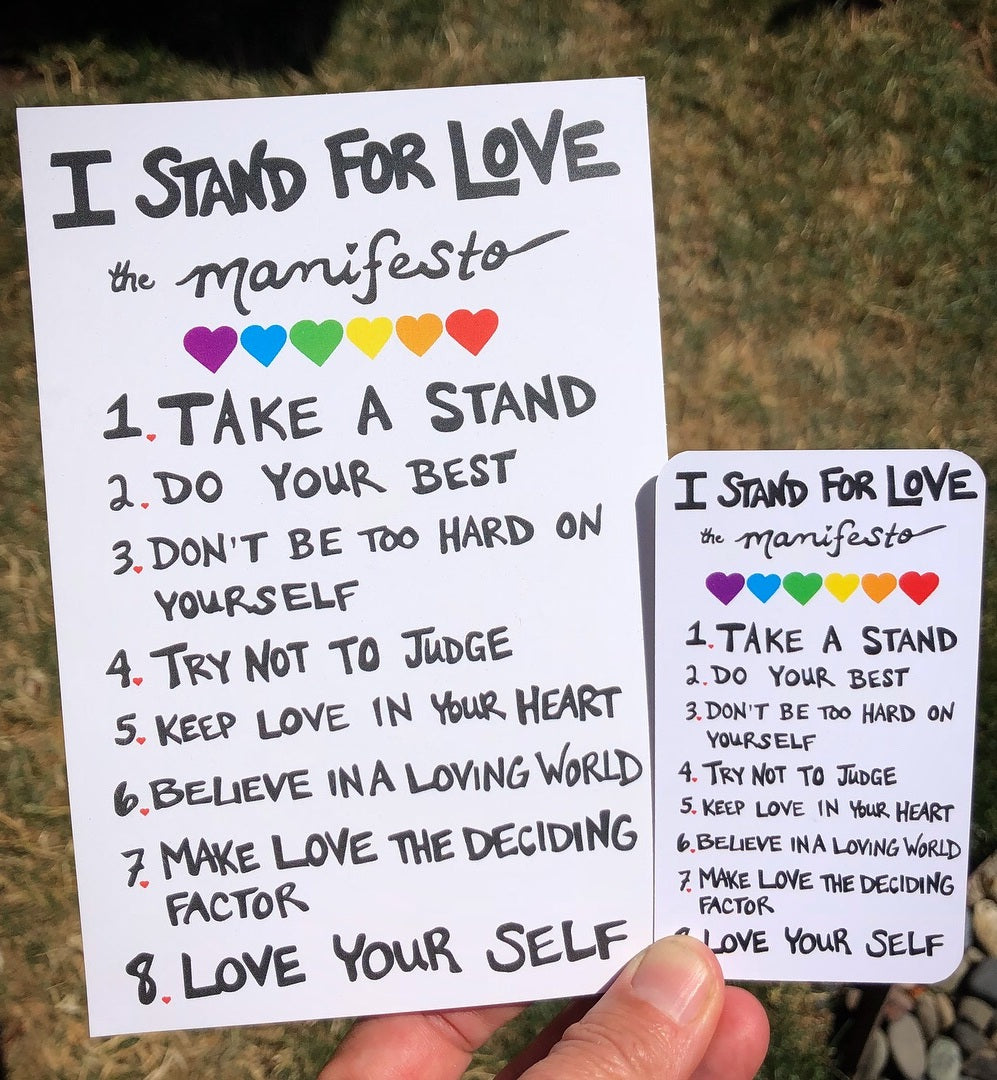 I STAND FOR LOVE
the manifesto
1. TAKE A STAND
2. DO YOUR BEST
3. DON'T BE TOO HARD ON
YOURSELF
4. TRY NOT TO JUDGE
5. KEEP LOVE IN YOUR HEART
6. BELIEVE IN A LOVING WORLD
7. MAKE LOVE THE DECIDING
FACTOR
8. LOVE YOUR SELF
I STAND FOR LOVE
the manifesto
1. TAKE A STAND
2. DO YOUR BEST
3. DON'T BE TOO HARD ON
YOURSELF
4. TRY NOT TO JUDGE
5. KEEP LOVE IN YOUR HEART
6. BELIEVE IN A LOVING WORLD
7. MAKE LOVE THE DECIDING
FACTOR
LOVE YOUR SELF